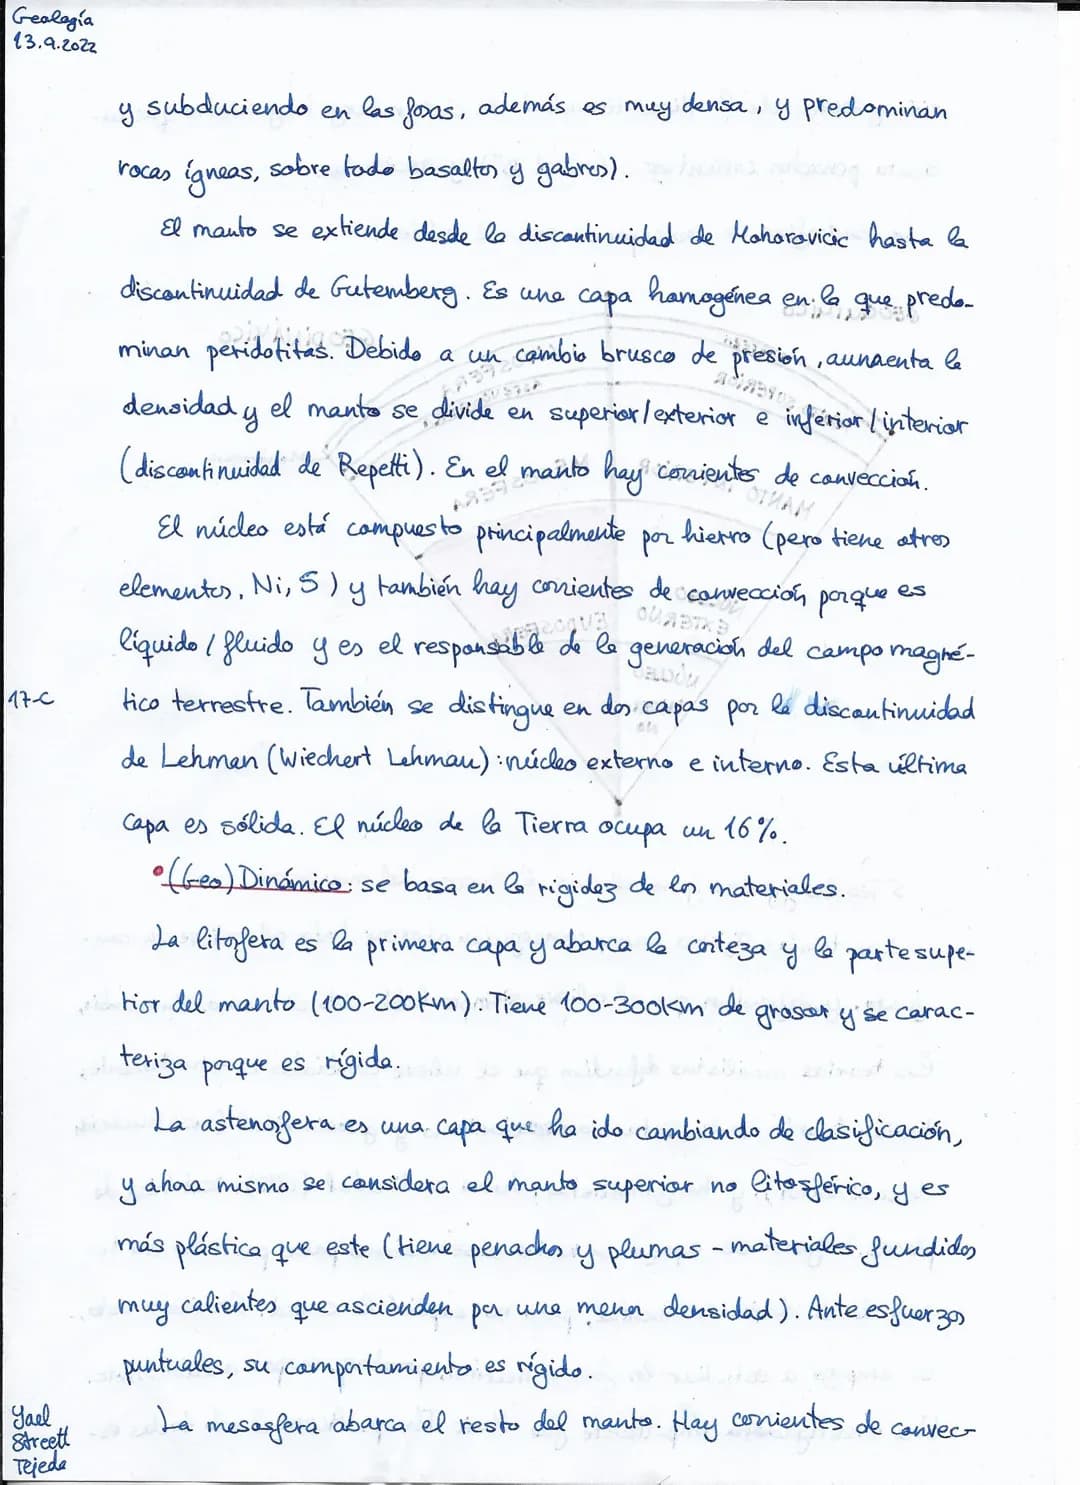 Geología
13.9.2022
y subduciendo en las fosas, además es muy densa, y predominan
rocas ígneas, sobre todo basaltos y gabros).
El manto se extiende desde la discontinuidad de Mohorovicic hasta la
discontinuidad de Gutemberg. Es una capa homogénea en la que predo-
minan peridotitas. Debido a un cambio brusco de presión, aumenta la
densidad y el manto se divide en superior/exterior e inferior/interior
(discontinuidad de Repetti). En el manto hay corrientes de convección.
El núcleo está compuesto principalmente por hierro (pero tiene otros
elementos, Ni, S) y también hay corrientes de convección porque es
líquido/fluido y es el responsable de la generación del campo magné-
17-C
tico terrestre. También se distingue en dos capas por la discontinuidad
de Lehman (Wiechert Lehman): núcleo externo e interno. Esta última
capa es sólida. El núcleo de la Tierra ocupa un 16%.
•(Geo)Dinámico: se basa en la rigidez de los materiales.
La litosfera es la primera capa y abarca la corteza y la parte supe-
rior del manto (100-200km). Tiene 100-300km de grosor y se carac-
teriza porque es rígida.
La astenosfera es una capa que ha ido cambiando de clasificación,
y ahora mismo se considera el manto superior no litosférico, y es
más plástica que este (tiene penachos y plumas - materiales fundidos
muy calientes que ascienden por una menor densidad). Ante esfuerzos
puntuales, su comportamiento es rígido.
La mesosfera abarca el resto del manto. Hay corrientes de convec-
Yael
Streett
Tejeda